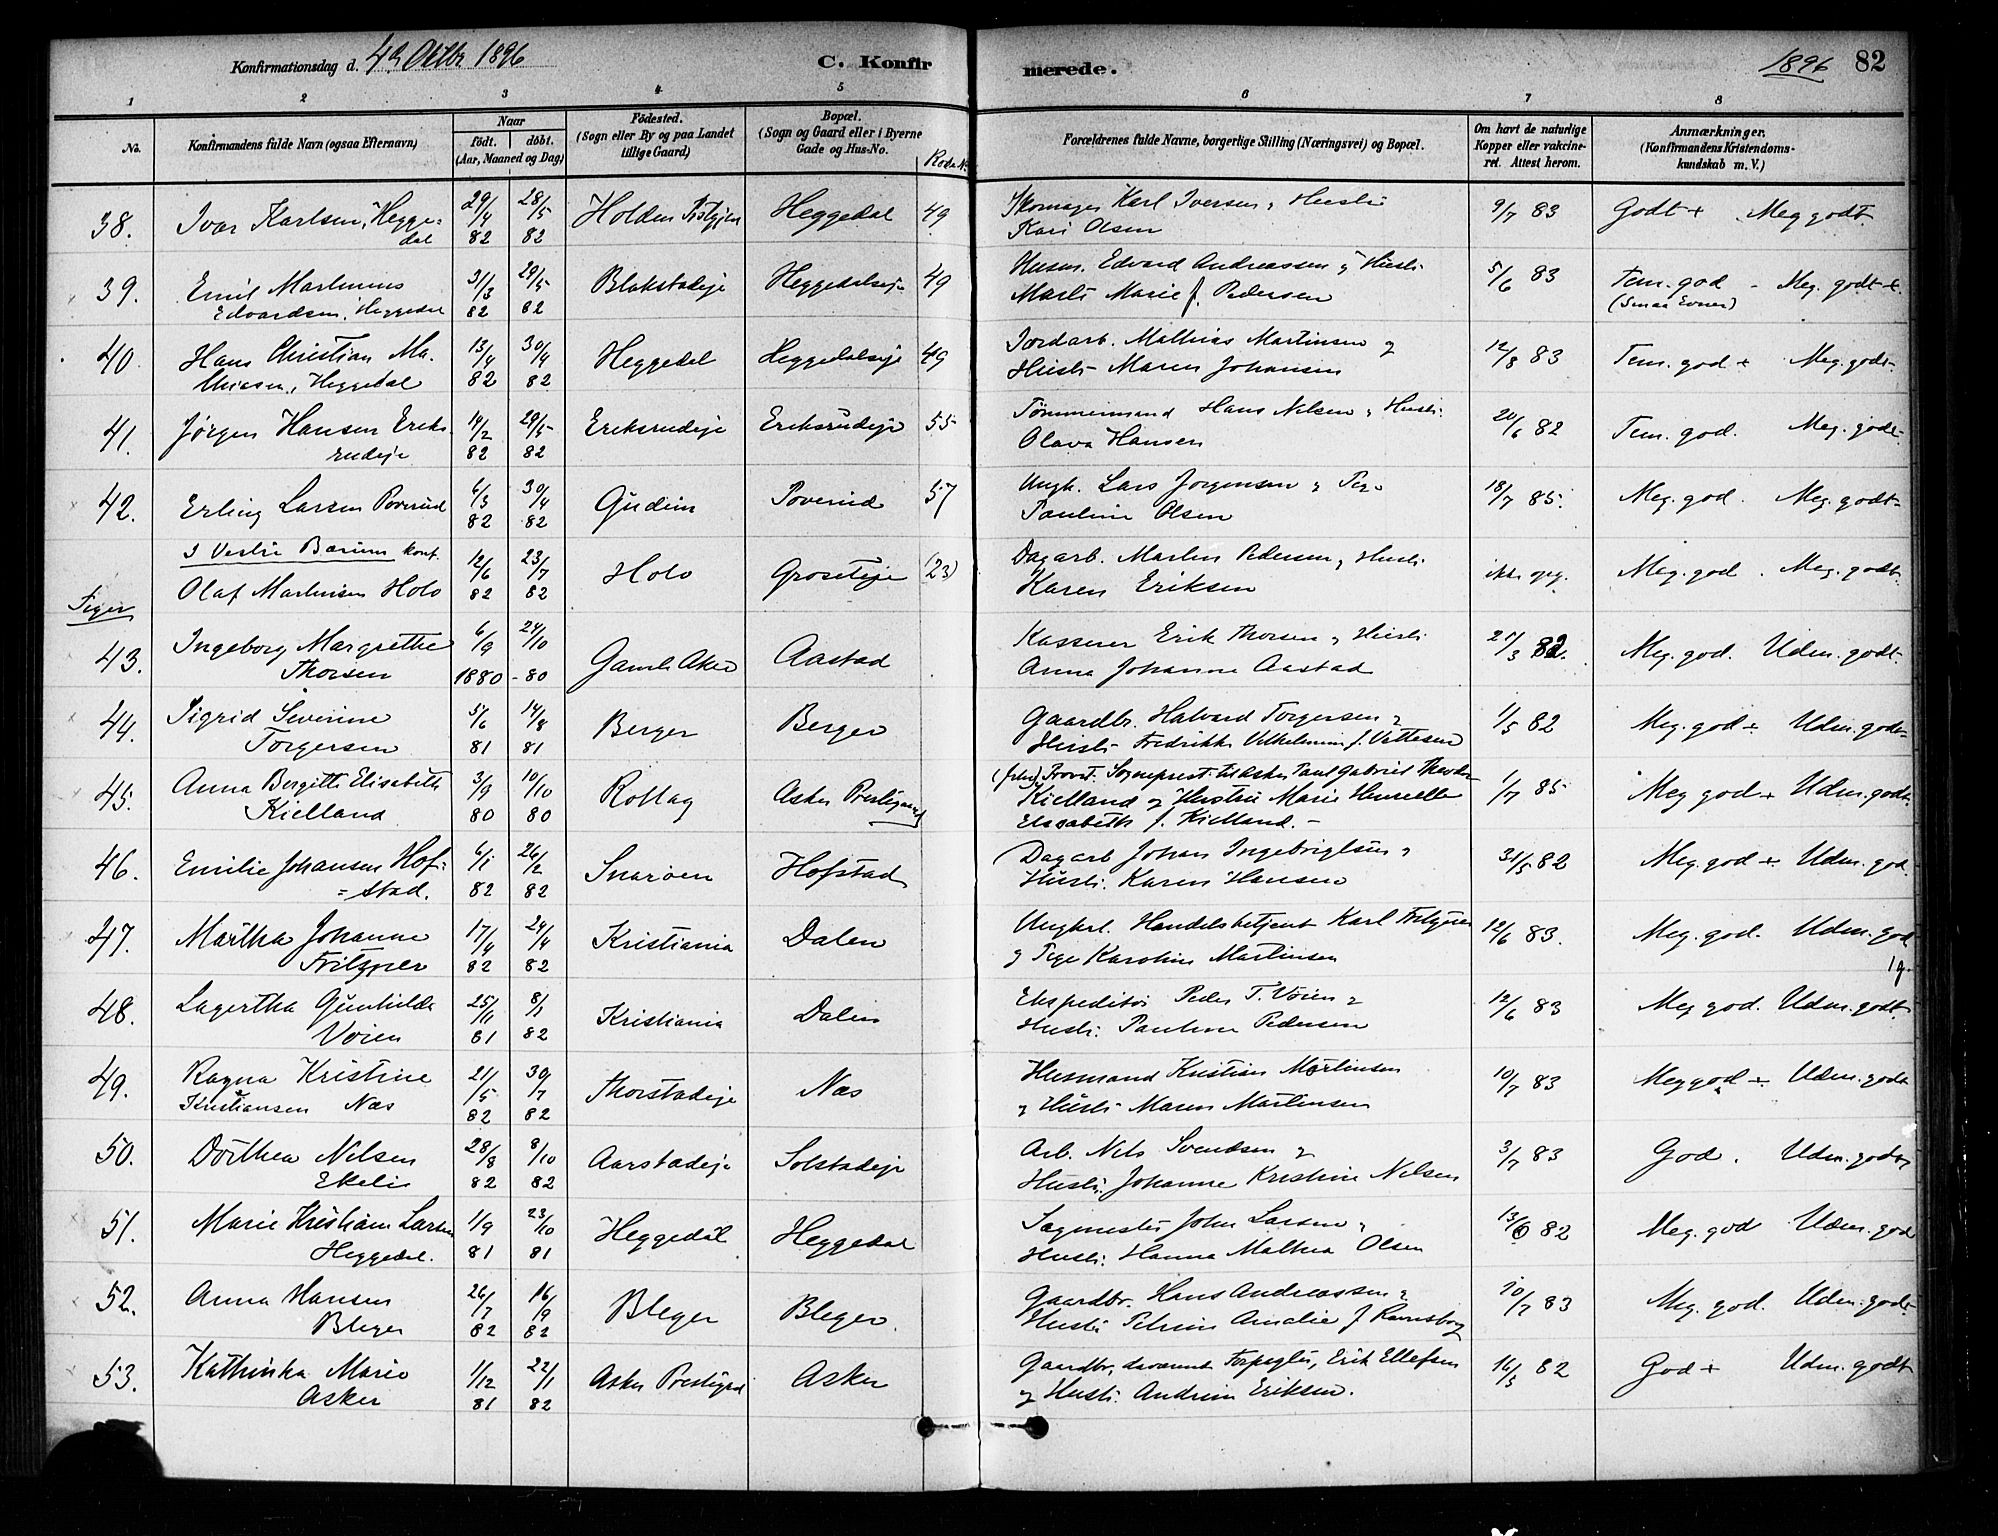 Konfirmationsdag d. 4de Oktbr 1896
C. Konfirmerede.
1896 82
1 2 3 4 5 6 7 8
No.
Konfirmandens fulde Navn (ogsaa Efternavn)
Naar
født. døbt.
(Aar, Maaned og Dag)
Fødested.
(Sogn eller By og paa Landet
tillige Gaard)
Bopæl.
(Sogn og Gaard eller i Byerne
Gade og Hus-No.
Rode No
Forældrenes fulde Navne, borgerlige Stilling (Næringsvei) og Bopæl.
Om havt de naturlige
Kopper eller vakcine-
ret. Attest herom.
Anmærkninger.
(Konfirmandens Kristendoms-
kundskab m. V.)
38. Ivar Karlsen, Hegge-
dal 29/4 82 28/5 82 Holden Prstgjeld Heggedal 49 Skomager Karl Iversen, Hustr:
Kari Olsen 9/7 83 Godt + Meg godt.
39. Emil Martinius
Edvardsen, Heggedal 31/3 82 29/5 82 Blakstadeje Heggedalseje 49 Husm. Edvard Andreassen og Hustr.
Marte Marie f. Pedersen 5/6 83 Tem. god - Meg. godt +
(Smaa Evner)
40. Hans Christian Ma-
thiesen, Heggedal 13/4 82 30/4 82 Heggedal Heggedalseje 49 Jordarb. Mathias Martinsen og
Hustr- Maren Johansen 12/8 83 Tem. god + Meg. godt-
41. Jørgen Hansen Eriks-
rudeje 14/2 82 29/5 82 Eriksrudeje Eriksrudeje 55 Tømmermand Hans Nilsen, Hustr.
Olava Hansen 20/6 82 Tem. god. Meg. godt-
42. Erling Larsen Poverud 6/3 82 30/4 82 Gudim Poverud 57 Ungk. Lars Jørgensen og Pig-
Pauline Olsen 18/7 85. Meg. god. Meg. godt-
I Vestre Bærum konf.
Olaf Martinsen Holo 12/6 82 23/7 82 Holo Groseteje (23) Dagarb. Martin Pedersen, Hustr.
Karen Eriksen ikke opg. Meg. god. Meg. godt.
Piger
43. Ingeborg Margrethe
Thorsen 6/9 1880 24/10 -80 Gamle Aker Aastad Kasserer Erik Thorsen og Hustr.
Anna Johanne Aastad 21/3 82. Meg. god. Udm. godt.
44. Sigrid Severine
Torgersen 5/6 81 14/8 81 Berger Berger Gaardbr. Halvard Torgersen og
Hustr- Fredrikke Vilhelmine f. Vettesen 1/5 82 Meg. god + Udm. godt-
45. Anna Bergitte Elisabeth
Kielland 3/9 80 10/10 80 Rollag Asker Prestegaard Provst. Sogneprest til Asker Paul Gabriel Theodor
Kielland og Hustru Marie Henrielle
Elisabeth f. Kielland.- 1/7 85 Meg god + Udm. godt.
46. Emilie Johansen Hof-
=stad. 6/1 82 26/2 82 Snarøen Hofstad Dagarb Johan Ingebrigtsen og
Hustr. Karen Hansen 31/5 82 Meg. god + Udm. god-
47. Martha Johanne
Fritzner 17/4 82 24/4 82 Kristiania Dalen Ungkrl. Handelsbetjent Karl Fritzner
og Pige Karoline Martinsen 12/6 83. Meg. god. Udm. god
48. Lagertha Gunhilda
Vøien 25/11 81 8/1 82 Kristiania Dalen Ekspeditør Peder T. Vøien og
Hustr. Pauline Pedersen 12/6 83 Meg god. Udm. godt.
49. Ragna Kristine
Kristiansen Næs 21/5 82 30/7 82 Thorstadeje Næs Husmand Kristian Martinsen
og Hustr- Maren Martensen 10/7 83 Meg god + Udm. godt
50. Dorthea Nilsen
Ekelie 28/8 82 8/10 82 Aarstadeje Solstadeje Arb. Nils Svendsen og
Hustr. Johanne Kristine Nilsen 3/7 83 God. Udm. godt
51. Marie Kristiane Larsen
Heggedal. 1/9 81 23/10 81 Heggedal Heggedal Sagmester John Larsen og
Hustr. Hanna Mathea Olsen 82 Meg. god Udm. god
52. Anna Hansen
Bleger 26/7 82 16/9 82 Bleger Bleger. Gaardbr. Hans Andreassen og
Hustr Petrine Amalie f Ravnsborg 10/7 83 Meg. god. Udm. godt-
53. Kathinka Marie
Asker 1/12 81 22/1 82 Asker Prestegrd Asker Gaardbr, daværende Forpagter, Erik Ellefsen
og Hustr. Andrine Eriksen. 16/5 82 God + Udm. godt